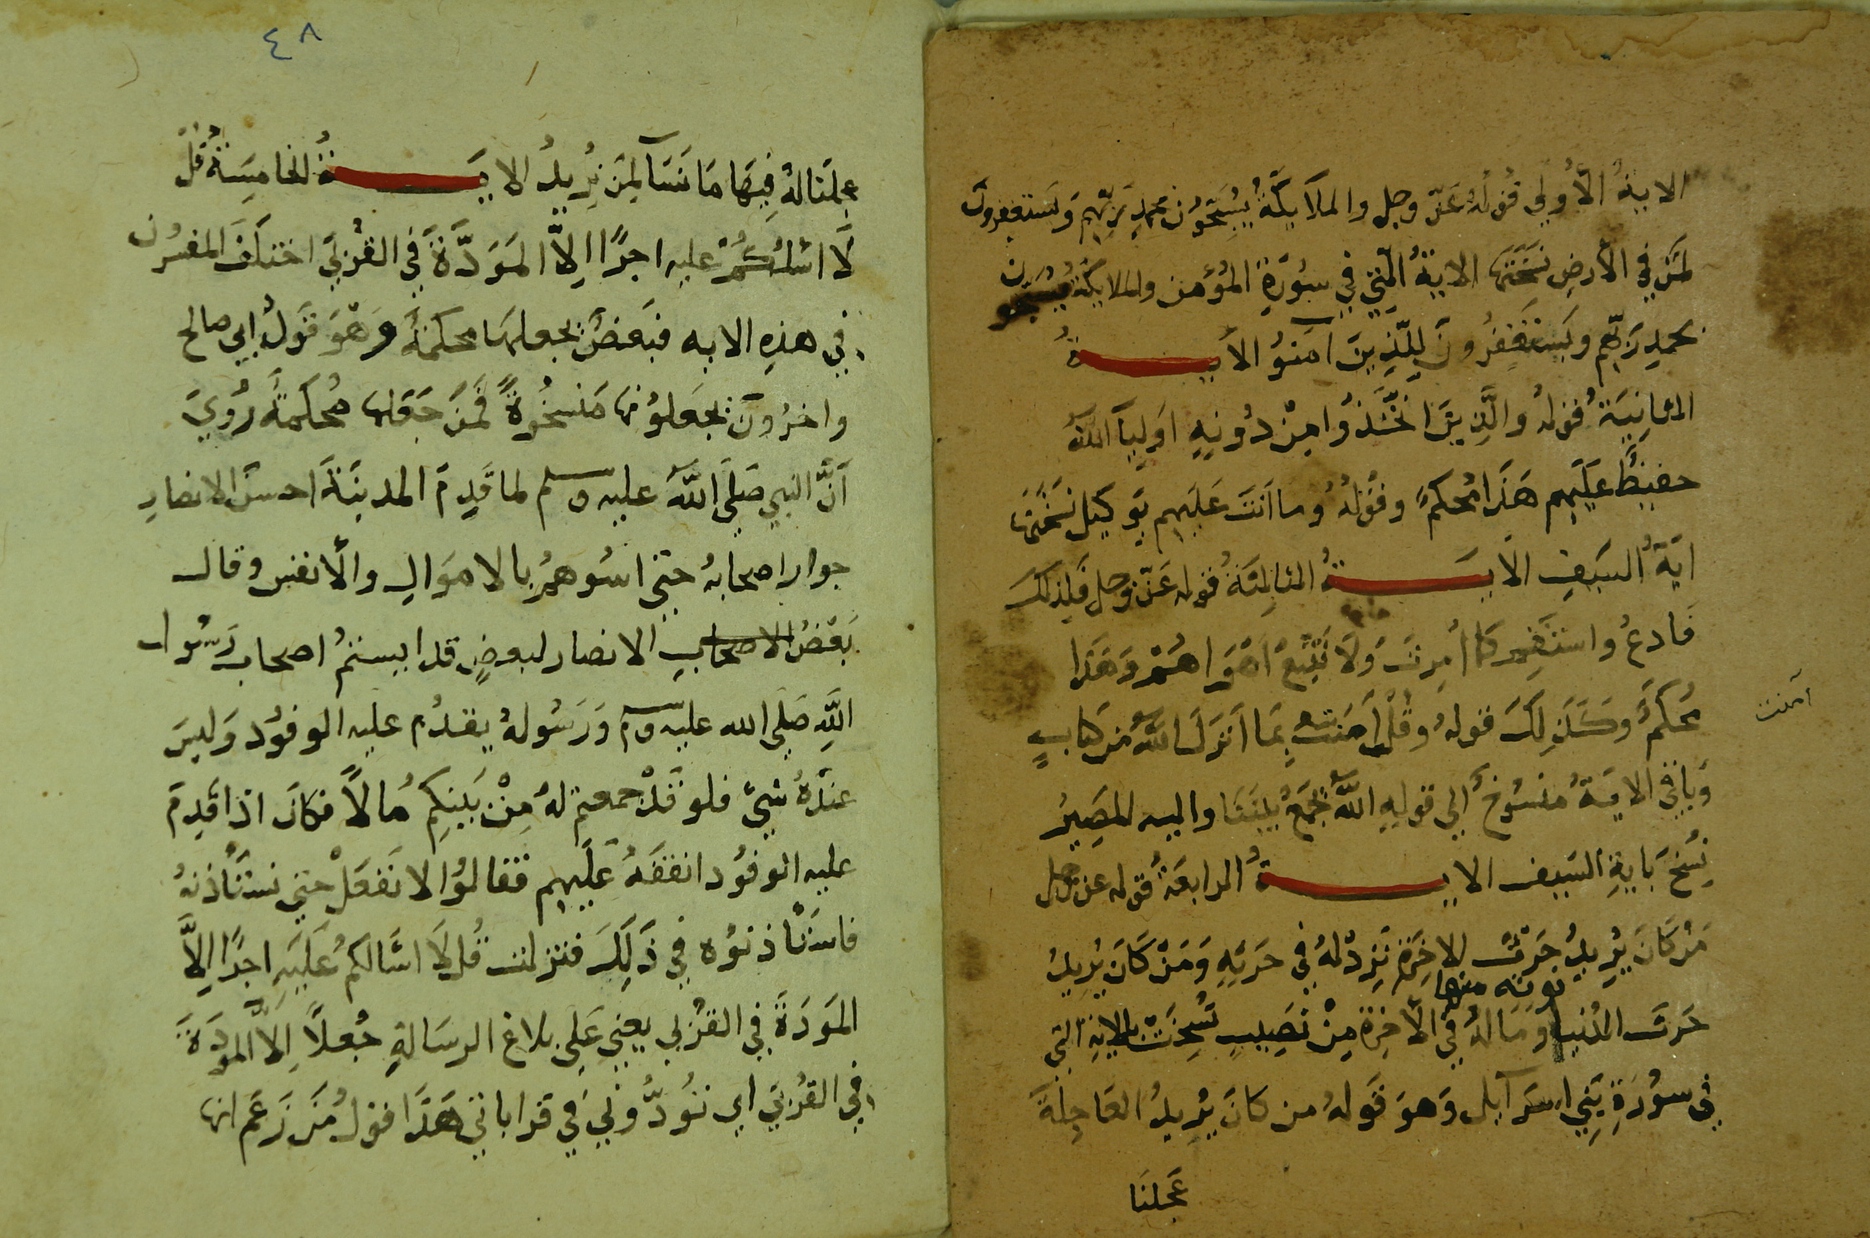 الاية الاولى قوله عز وجل والملايكة يسبحون بحمد ربهم ويستغفرون
لمن في الارض نسختها الاية التي في سورة المؤمن والملايكة يسبحون
بحمد ربهم ويستغفرون للذين آمنوا الايــــة
الثانية قوله والذين اتخذوا من دونه اوليآ الله
حفيظ عليهم هذا محكم وقوله وما انت عليهم بوكيل نسختها
اية السيف الايــــة الثالثة قوله عز وجل فلذلك
فادع واستقم كما امرت ولا تتبع اهواهم وهذا
محكم وكذلك قوله وقل امنت بما انزل الله من كتاب
امنت
وباقي الاية منسوخ الى قوله الله يجمع بيننا واليه المصير
نسخ باية السيف الايــــة الرابعة قوله عز وجل
من كان يريد حرث الاخرة نزد له في حرثه ومن كان يريد
نوته منها
حرث الدنيا وماله في الآخرة من نصيب نسخت بالاية التي
في سورة بني اسرآيل وهو قوله من كان يريد العاجلة
عجلنا
٤٨
عجلنا له فيها ما نشآ لمن نريد الايــــة الخامسة قل
لا اسئلكم عليه اجرا الا المودة في القربى اختلف المفسرون
في هذه الايه فبعض يجعلها محكمة وهو قول ابي صالح
واخرون يجعلونها منسوخة فمن جعلها محكمة روي
أن النبي صلى الله عليه وسلم لما قدم المدينة احسن الانصار
جوار اصحابه حتى اسوهم بالاموال والأنفس وقال
بعض الاصحاب الانصار لبعض قد ايسنم اصحاب رسول
الله صلى الله عليه وسلم ورسوله يقدم عليه الوفود وليس
عنده شيئ فلو قد جمعتم له من بينكم مالا فكان اذا قدم
عليه الوفود انفقه عليهم فقالوا لا نفعل حتى نستأذنه
فاستأذنوه في ذلك فنزلت قل لا اسالكم عليه اجرا الا
المودة في القربى يعني على بلاغ الرسالة جعلا الا المودة
في القربى اي تودوني في قراباتي هذا قول من زعم انها